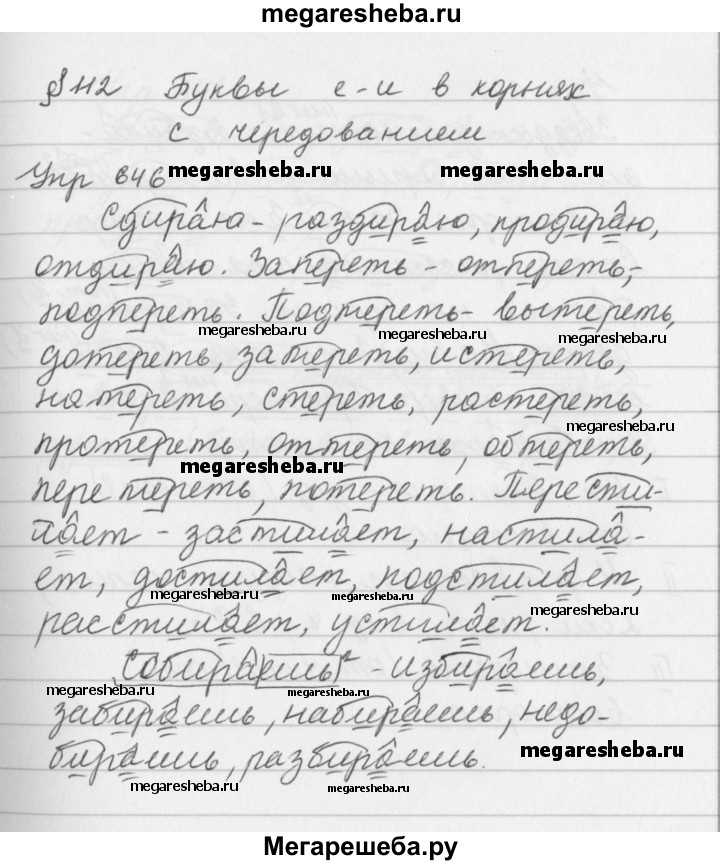 megaresheba.ru
§112 Буквы е-и в корнях
с чередованием
Упр 646
megaresheba.ru megaresheba.ru
Сдираю - раздираю, продираю,
отдираю. Запереть - отпереть,
подпереть. Подтереть - вытереть,
megaresheba.ru megaresheba.ru megaresheba.ru
дотереть, затереть, истереть,
натереть, стереть, растереть,
megaresheba.ru
протереть, оттереть, обтереть,
megaresheba.ru
перетереть, потереть. Перести-
лает - застилает, настила-
ет, достилает, подстилает,
megaresheba.ru megaresheba.ru megaresheba.ru
расстилает, устилает.
Собираешь² - избираешь,
megaresheba.ru megaresheba.ru
забираешь, набираешь, недо-
бираешь, разбираешь.
megaresheba.ru
megaresheba.ru megaresheba.ru megaresheba.ru
Мегарешеба.ру